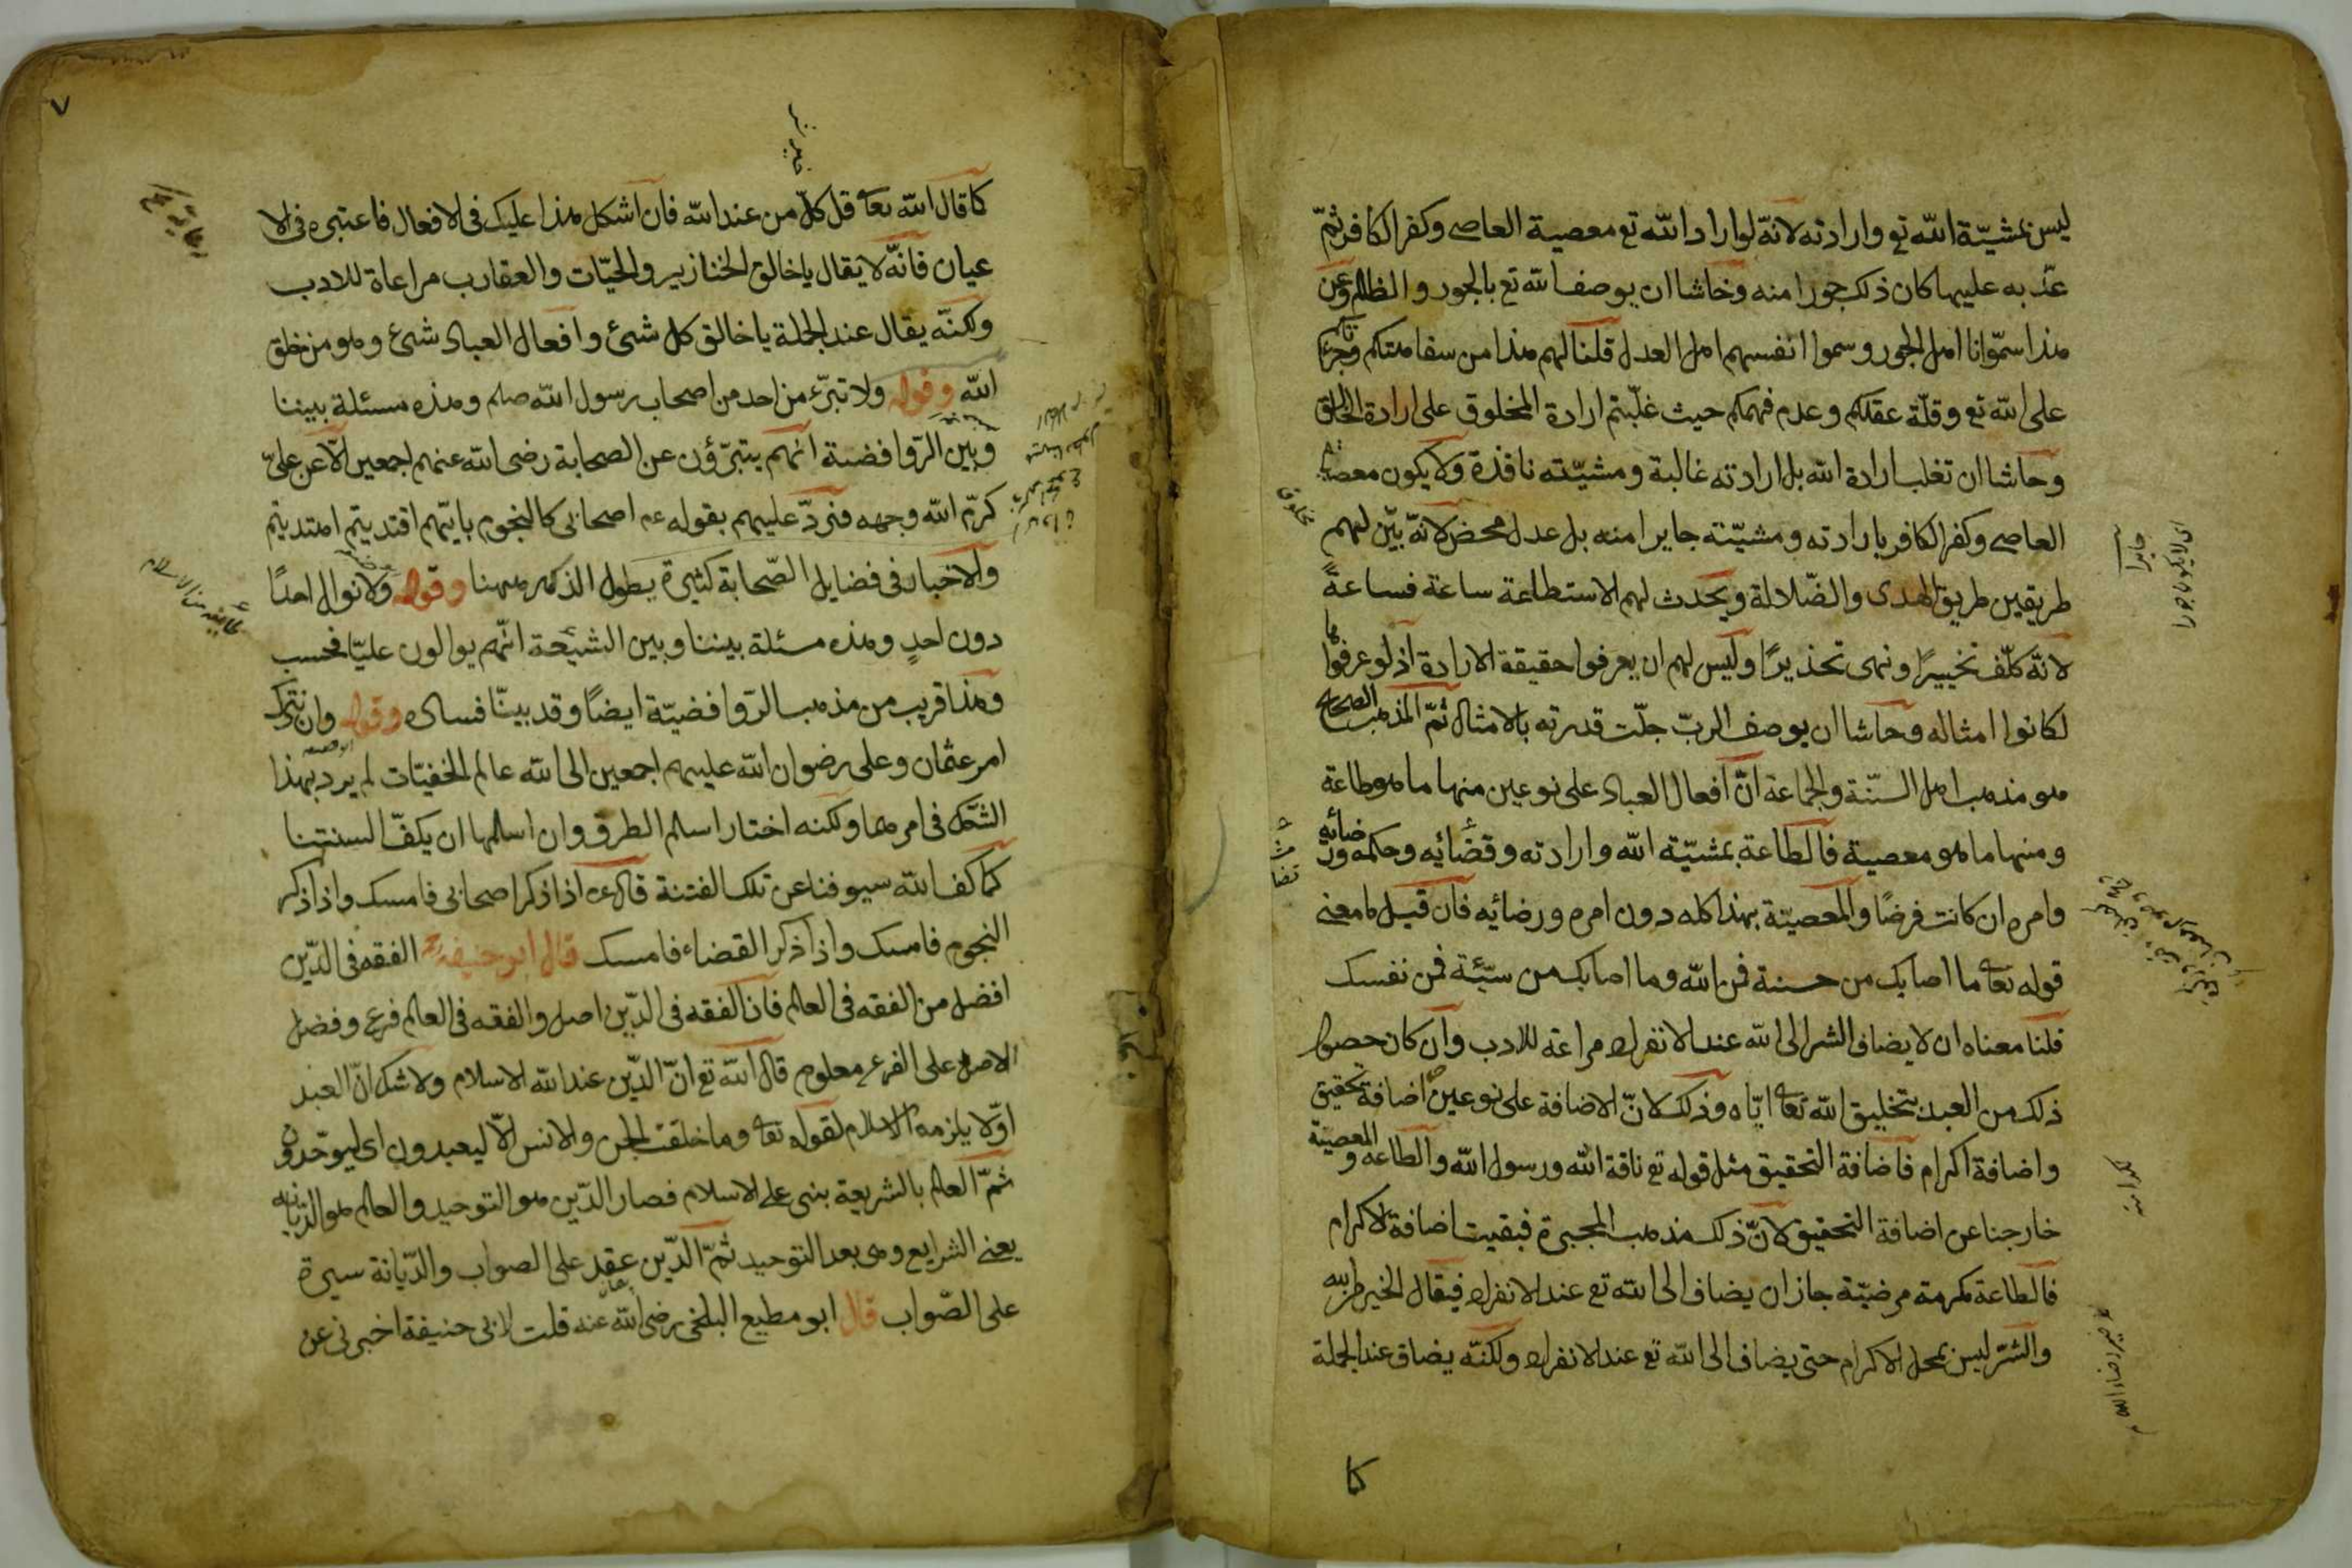 ليس بمشيّة الله تع وارادته لانّه لو اراد الله تع معصية العاصى وكفر الكافر ثمّ
عذّبه عليها كان ذلك جورا منه وحاشا ان يوصف الله تع بالجور والظلم وعن
هذا سمّوانا اهل الجور وسموا انفسهم اهل العدل قلنا لهم هذا من سفاهتكم وجرئتكم
على الله تع وقلّة عقلكم وعدم فهمكم حيث غلّبتم ارادة المخلوق على ارادة الخالق
وحاشا ان تغلب ارادة الله بل ارادته غالبة ومشيّته نافذة ولا يكون معصية
العاصى وكفر الكافر بارادته ومشيّته جايرا منه بل عدل محض لانّه بيّن لهم
طريقين طريق الهدى والضّلالة ويحدث لهم الاستطاعة ساعة فساعةً
لانّه كلّف تخييرًا ونهى تحذيرًا وليس لهم ان يعرفوا حقيقة الارادة اذ لو عرفوها
لكانوا امثاله وحاشا ان يوصف الربّ جلّت قدرته بالامثال ثمّ المذهب الصحيح
هو مذهب اهل السنّة والجماعة انّ افعال العباد على نوعين منها ما هو طاعة
ومنها ما هو معصية فالطاعة بمشيّة الله وارادته وقضائه وحكمه ورضائه
وامره ان كانت فرضًا والمعصيّة بهذا كله دون امره ورضائه فان قيل ما معنى
قوله تعا ما اصابك من حسنة فمن الله وما اصابك من سيّئة فمن نفسك
قلنا معناه ان لا يضاف الشر الى الله عند الانفراد مراعة للادب وان كان حصول
ذلك من العبد بتخليق الله تعا ايّاه وذلك لانّ الاضافة على نوعين اضافة تحقيق
واضافة اكرام فاضافة التحقيق مثل قوله تع ناقة الله ورسول الله والطاعة والمعصيّة
خارجنا عن اضافة التحقيق لانّ ذلك مذهب المجبرة فبقيت اضافة الاكرام
فالطاعة مكرمة مرضيّة جاز ان يضاف الى الله تع عند الانفراد فيقال الخير من الله
والشرّ ليس بمحل الاكرام حتى يضاف الى الله تع عند الانفراد ولكنّه يضاف عند الجملة
كا
جايرا
اى لا يكون جورا
مخلوق
٧
كا قال الله تعا قل كلّ من عند الله فان اشكل هذا عليك فى الافعال فاعتبره فى الا
عيان فانّه لا يقال يا خالق الخنازير والحيّات والعقارب مراعاة للادب
ولكنّه يقال عند الجملة يا خالق كل شئ وافعال العباد شئ وهو من خلق
الله وقوله ولا تبرّء من احد من اصحاب رسول الله صلم وهذه مسئلة بيننا
وبين الرّوافضة انّهم يتبرّؤن عن الصحابة رضى الله عنهم اجمعين الّا عن علىّ
كرّم الله وجهه فنردّ عليهم بقوله عم اصحابى كالنجوم بايّهم اقتديتم اهتديتم
والاخبار فى فضايل الصّحابة كثيرة يطول الذكر ههنا وقوله ولا نوال احدًا
دون احدٍ وهذه مسئلة بيننا وبين الشيعة انّهم يوالون عليّا فحسب
وهذا قريب من مذهب الرّوافضيّة ايضًا وقد بينّا فساده وقوله وان نترك
امر عثمان وعلى رضوان الله عليهم اجمعين الى الله عالم الخفيّات لم يرد بهذا
الشّك فى امرهما ولكنه اختار اسلم الطرق وان اسلمها ان يكفّ السنتنا
كما كفّ الله سيوفنا عن تلك الفتنة قال عم اذا ذكر اصحابى فامسك واذا ذكر
النجوم فامسك واذا ذكر القضاء فامسك قال ابو حنيفة الفقه فى الدّين
افضل من الفقه فى العلم فان الفقه فى الدّين اصل والفقه فى العلم فرع وفضل
الاصل على الفرع معلوم قال الله تع انّ الدّين عند الله الاسلام ولا شك انّ العبد
اوّلا يلزمه الاسلام لقوله تعا وما خلقت الجن والانس الّا ليعبدون اى ليوحّدون
ثمّ العلم بالشريعة بنى على الاسلام فصار الدّين هو التوحيد والعلم هو الدّيانة
يعنى الشرايع وهى بعد التوحيد ثمّ الدّين عقد على الصواب والدّيانة سيرة
على الصّواب قال ابو مطيع البلخى رضى الله عنه قلت لابى حنيفة اخبرنى عن